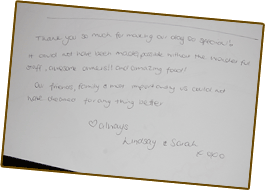 Thank you so much for making our day so special!
It could not have been made possible without the wonderful
staff, awesome ambience and amazing food!
Our friends, family & most importantly us could not
have wished for any thing better
♡ always
Lindsay & Sarah